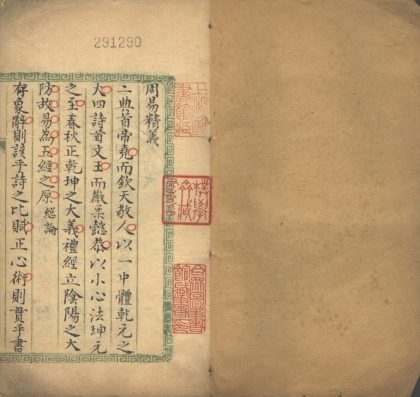 291290
周易精義
二典首帝堯而欽天敬人以一中體乾元之
大四詩首文王而徽柔懿恭以小心法坤元
之至春秋正乾坤之大義禮經立陰陽之大
防故易為五經之原 經論
存象辭則該乎詩之比賦正心術則貫乎書